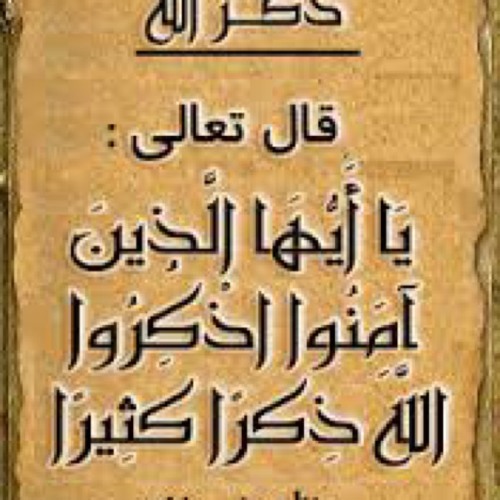 ذكر الله
قال تعالى :
يَا أَيُّهَا الَّذِينَ
آمَنُوا اذْكِرُوا
اللَّهَ ذِكرًا كثِيرًا